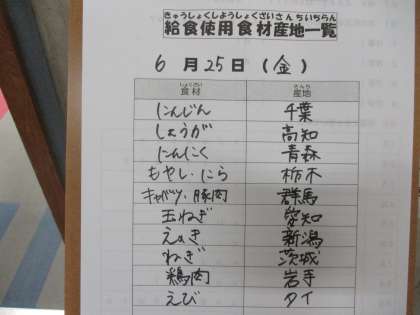 きゅうしょくしようしょくざいさんちいちらん
給食使用食材産地一覧
6月25日(金)
しょくざい さんち
食材 産地
にんじん 千葉
しょうが 高知
にんにく 青森
もやし・にら 栃木
キャベツ・豚肉 群馬
玉ねぎ 愛知
えのき 新潟
ねぎ 茨城
鶏肉 岩手
えび タイ